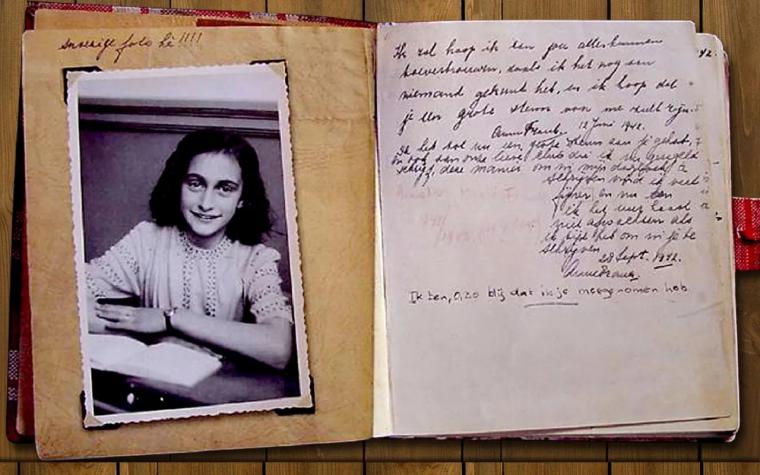 snoezige foto hè!!!!
Ik zal hoop ik aan jou alles kunnen
toevertrouwen, zoals ik het nog aan
niemand gekund heb, en ik hoop dat
je een grote steun van me zult zijn.
Anne Frank. 12 Juni 1942.
Ik heb tot nu een grote steun aan je gehad,
en ook aan onze lieve club die ik nu geregeld
schrijf, deze manier om in mijn dagboek te
schrijven vind ik veel
fijner en nu kan
ik het uur haast
niet afwachten als
ik tijd heb om in je te
schrijven.
28 Sept. 1942.
Anne Frank.
Ik ben, O, zo blij dat ik je meegenomen heb.
42.